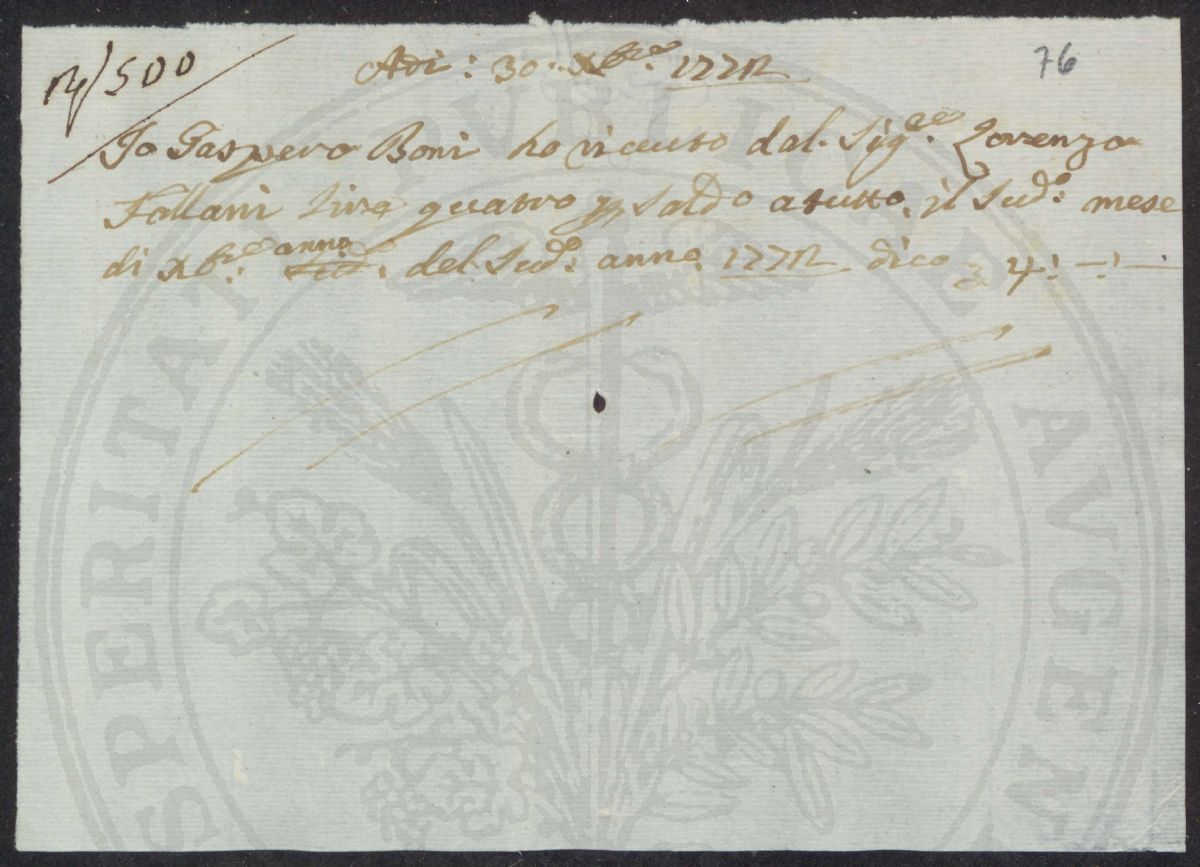 N°/500
Adi: 30: Xbre: 1772 76
Io Gaspero Boni ho riceuto dal Sigre: Lorenzo
Fallani lire quatro p saldo a tutto il sudo: mese
di Xbre: anno del sudo: anno 1772 dico £ 4:—:—
PERITAT PVBLICAE AVGEN